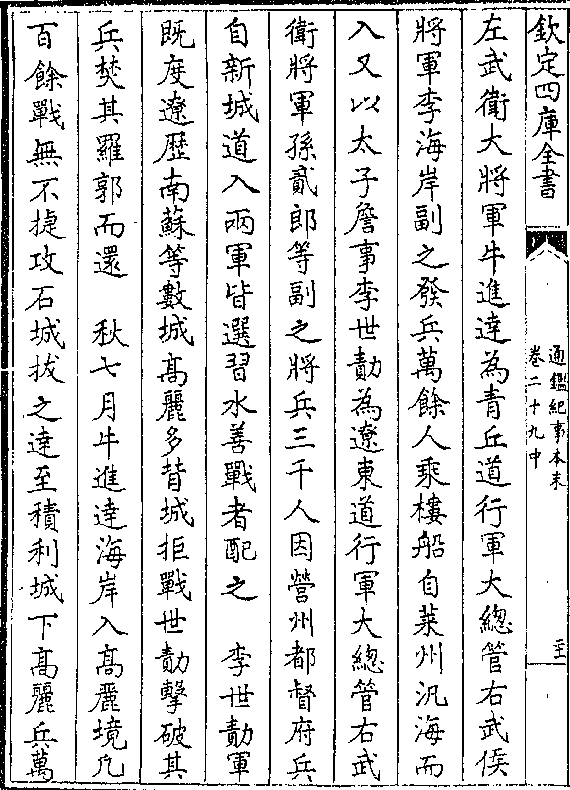 欽定四庫全書
通鑑紀事本末
卷二十九中
左武衛大將軍牛進達為青丘道行軍大總管右武侯
將軍李海岸副之發兵萬餘人乘樓船自萊州汎海而
入又以太子詹事李世勣為遼東道行軍大總管右武
衛將軍孫貳郎等副之將兵三千人因營州都督府兵
自新城道入兩軍皆選習水善戰者配之　李世勣軍
既度遼歷南蘇等數城髙麗多背城拒戰世勣擊破其
兵焚其羅郭而還　秋七月牛進達海岸入髙麗境凡
百餘戰無不捷攻石城拔之達至積利城下髙麗兵萬